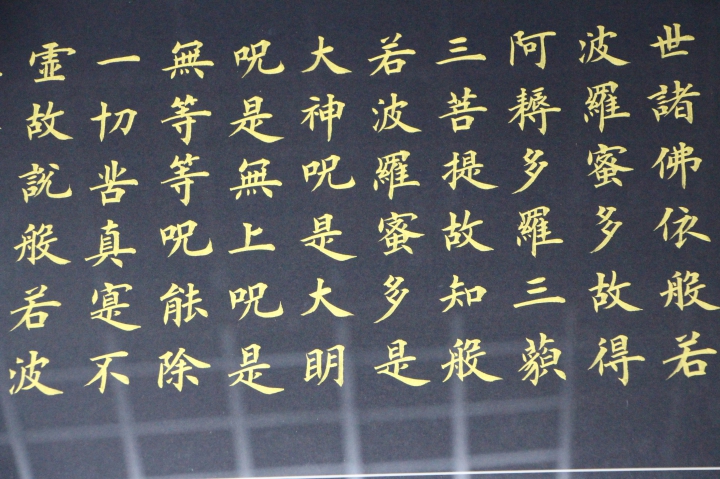 世諸佛依般若
波羅蜜多故得
阿耨多羅三藐
三菩提故知般
若波羅蜜多是
大神呪是大明
呪是無上呪是
無等等呪能除
一切苦真寔不
虛故説般若波